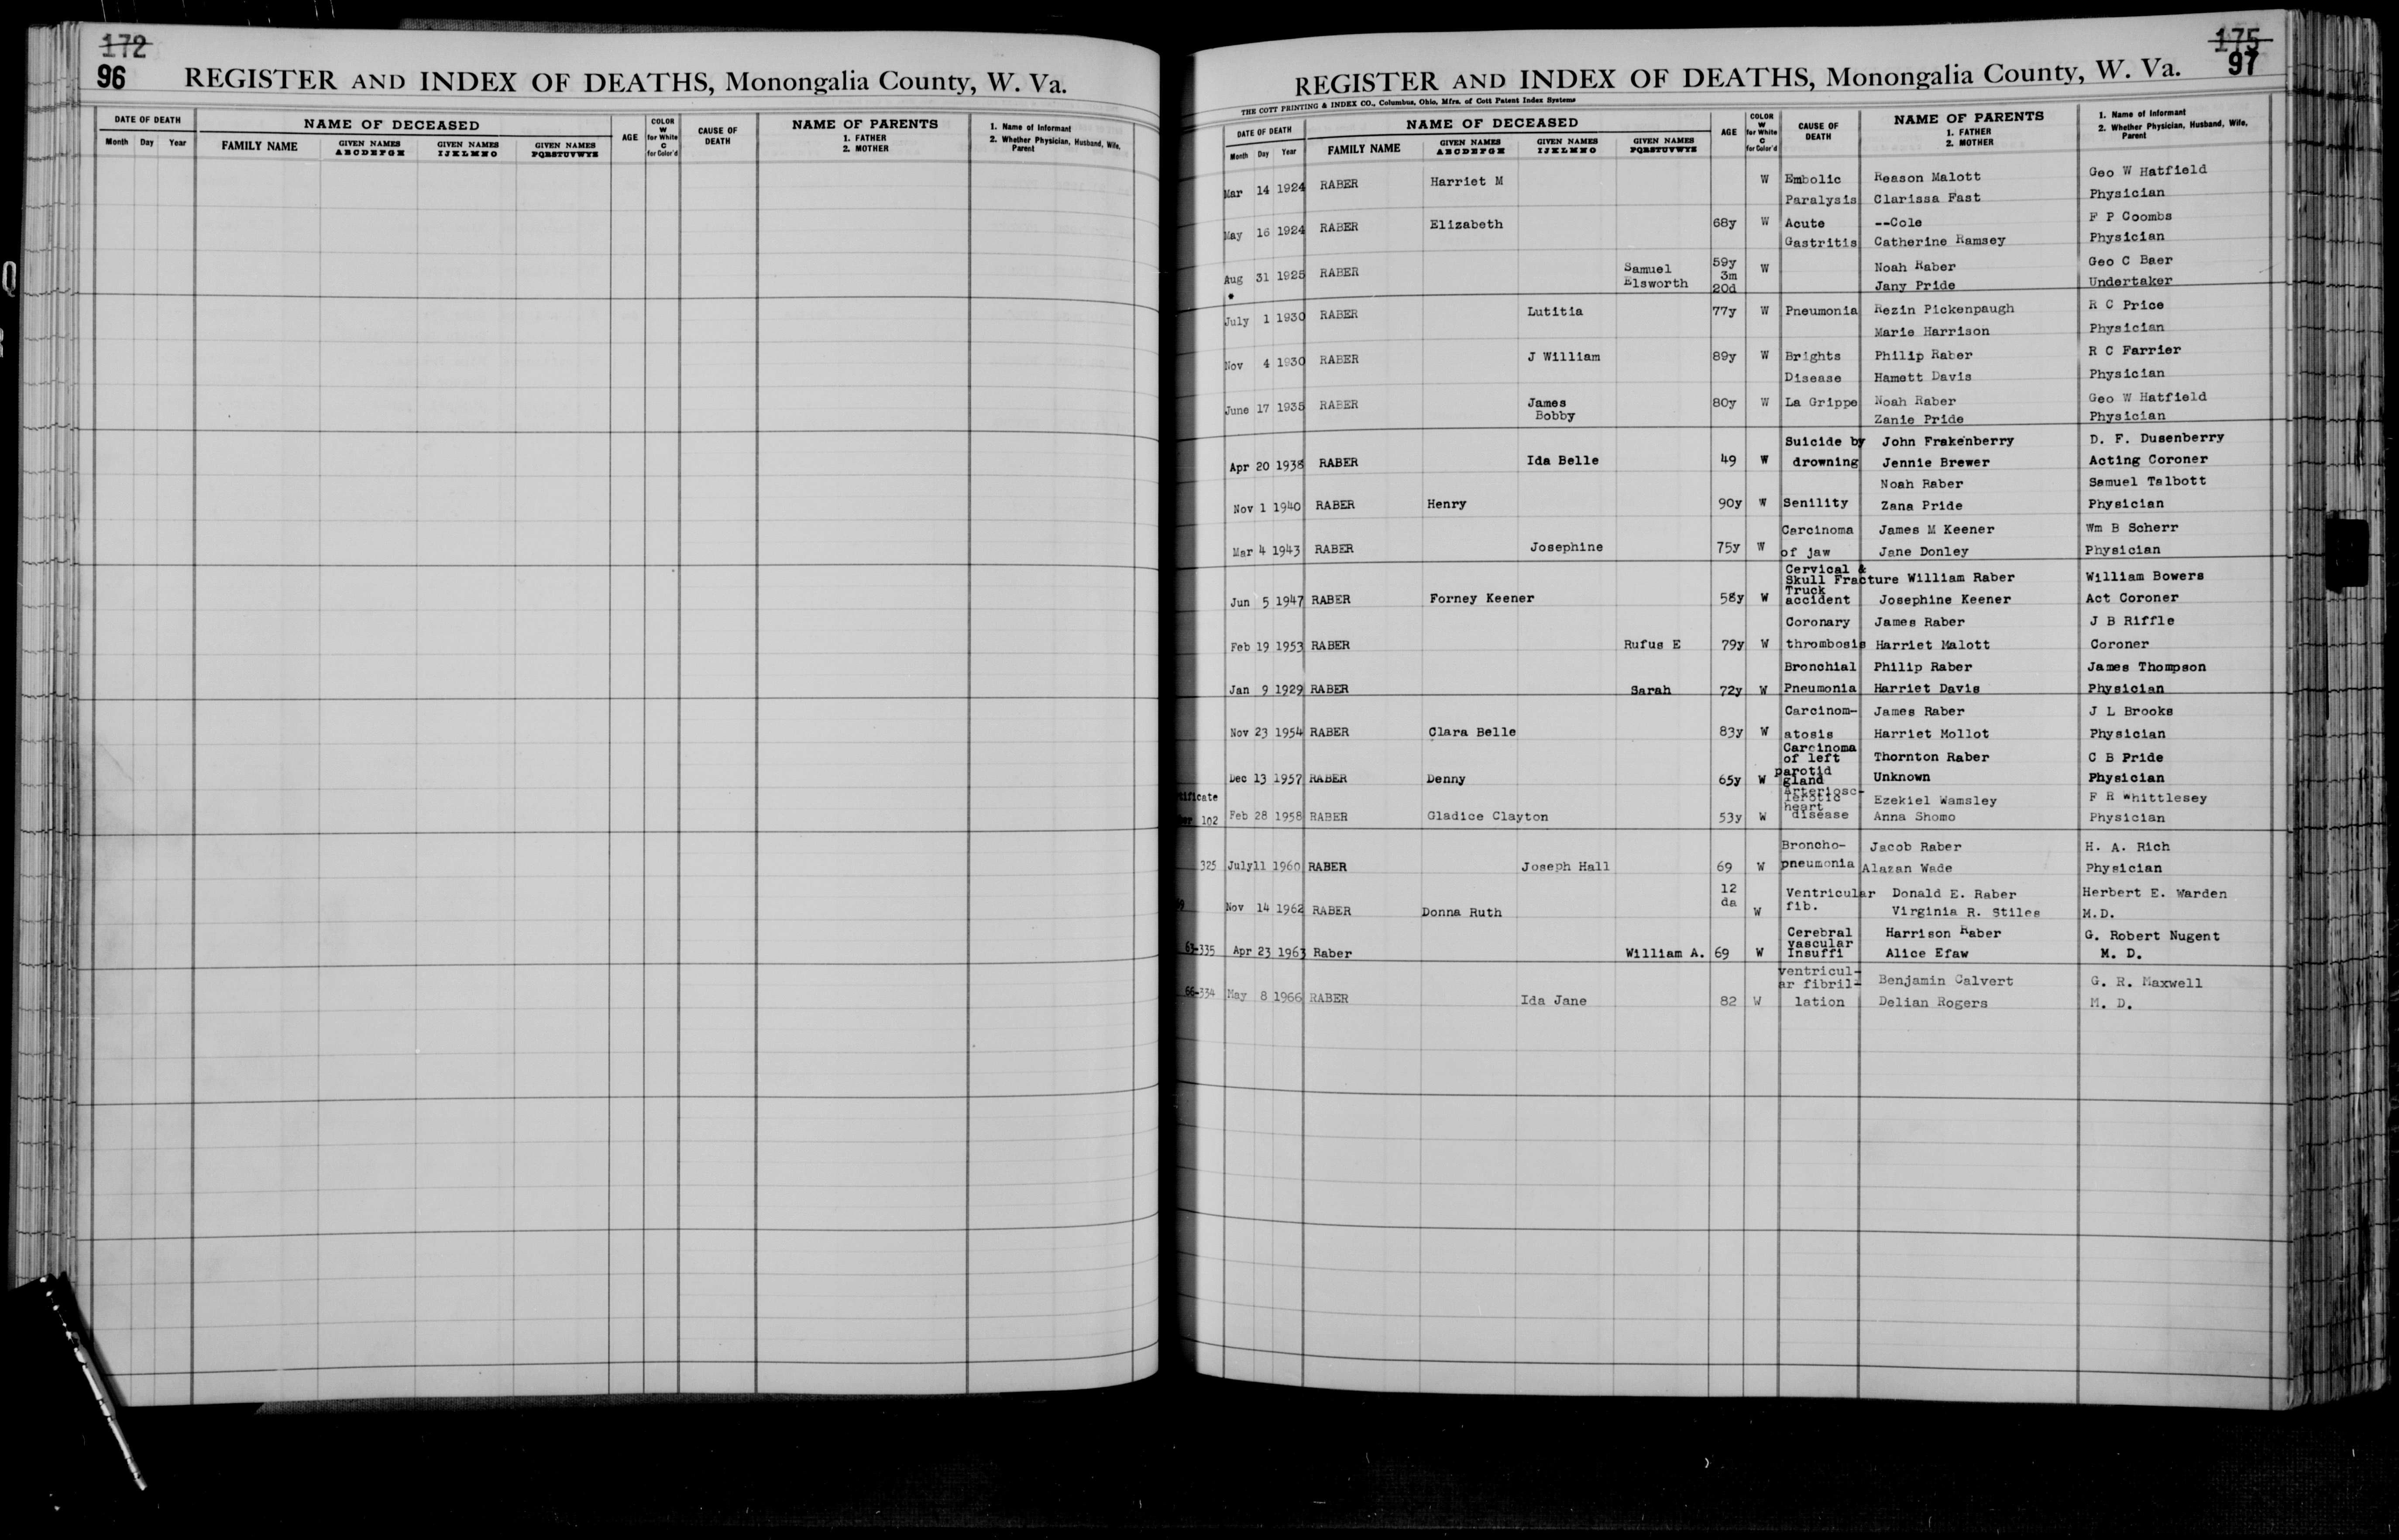 172
96
REGISTER AND INDEX OF DEATHS, Monongalia County, W. Va.
DATE OF DEATH
Month Day Year
NAME OF DECEASED
FAMILY NAME
GIVEN NAMES
ABCDEFGH
GIVEN NAMES
IJKLMNO
GIVEN NAMES
PQRSTUVWYZ
AGE
COLOR
W
for White
C
for Color'd
CAUSE OF
DEATH
NAME OF PARENTS
1. FATHER
2. MOTHER
1. Name of Informant
2. Whether Physician, Husband, Wife,
Parent
175
97
REGISTER AND INDEX OF DEATHS, Monongalia County, W. Va.
THE COTT PRINTING & INDEX CO., Columbus, Ohio, Mfrs. of Cott Patent Index Systems
DATE OF DEATH
Month Day Year
NAME OF DECEASED
FAMILY NAME
GIVEN NAMES
ABCDEFGH
GIVEN NAMES
IJKLMNO
GIVEN NAMES
PQRSTUVWYZ
AGE
COLOR
W
for White
C
for Color'd
CAUSE OF
DEATH
NAME OF PARENTS
1. FATHER
2. MOTHER
1. Name of Informant
2. Whether Physician, Husband, Wife,
Parent
Mar 14 1924 RABER Harriet M W Embolic Reason Malott Geo W Hatfield
Paralysis Clarissa Fast Physician
May 16 1924 RABER Elizabeth 68y W Acute --Cole F P Coombs
Gastritis Catherine Ramsey Physician
Aug 31 1925 RABER Samuel 59y W Noah Raber Geo C Baer
Elsworth 3m
20d Jany Pride Undertaker
July 1 1930 RABER Lutitia 77y W Pneumonia Rezin Pickenpaugh R C Price
Marie Harrison Physician
Nov 4 1930 RABER J William 89y W Brights Philip Raber R C Farrier
Disease Hamett Davis Physician
June 17 1935 RABER James 80y W La Grippe Noah Raber Geo W Hatfield
Bobby Zanie Pride Physician
Suicide by John Frakenberry D. F. Dusenberry
Apr 20 1938 RABER Ida Belle 49 W drowning Jennie Brewer Acting Coroner
Noah Raber Samuel Talbott
Nov 1 1940 RABER Henry 90y W Senility Zana Pride Physician
Carcinoma James M Keener Wm B Scherr
Mar 4 1943 RABER Josephine 75y W of jaw Jane Donley Physician
Cervical &
Skull Fracture William Raber William Bowers
Truck
Jun 5 1947 RABER Forney Keener 58y W accident Josephine Keener Act Coroner
Coronary James Raber J B Riffle
Feb 19 1953 RABER Rufus E 79y W thrombosis Harriet Malott Coroner
Bronchial Philip Raber James Thompson
Jan 9 1929 RABER Sarah 72y W Pneumonia Harriet Davis Physician
Carcinom- James Raber J L Brooks
Nov 23 1954 RABER Clara Belle 83y W atosis Harriet Mollot Physician
Carcinoma
of left Thornton Raber C B Pride
parotid
Dec 13 1957 RABER Denny 65y W gland Unknown Physician
tificate Arteriosc-
lerotic Ezekiel Wamsley F R Whittlesey
heart
102 Feb 28 1958 RABER Gladice Clayton 53y W disease Anna Shomo Physician
Broncho- Jacob Raber H. A. Rich
325 July11 1960 RABER Joseph Hall 69 W pneumonia Alazan Wade Physician
12
da Ventricular Donald E. Raber Herbert E. Warden
Nov 14 1962 RABER Donna Ruth W fib. Virginia R. Stiles M.D.
Cerebral Harrison Raber G. Robert Nugent
vascular
63-335 Apr 23 1963 Raber William A. 69 W Insuffi Alice Efaw M. D.
ventricul-
ar fibril- Benjamin Calvert G. R. Maxwell
66-334 May 8 1966 RABER Ida Jane 82 W lation Delian Rogers M. D.